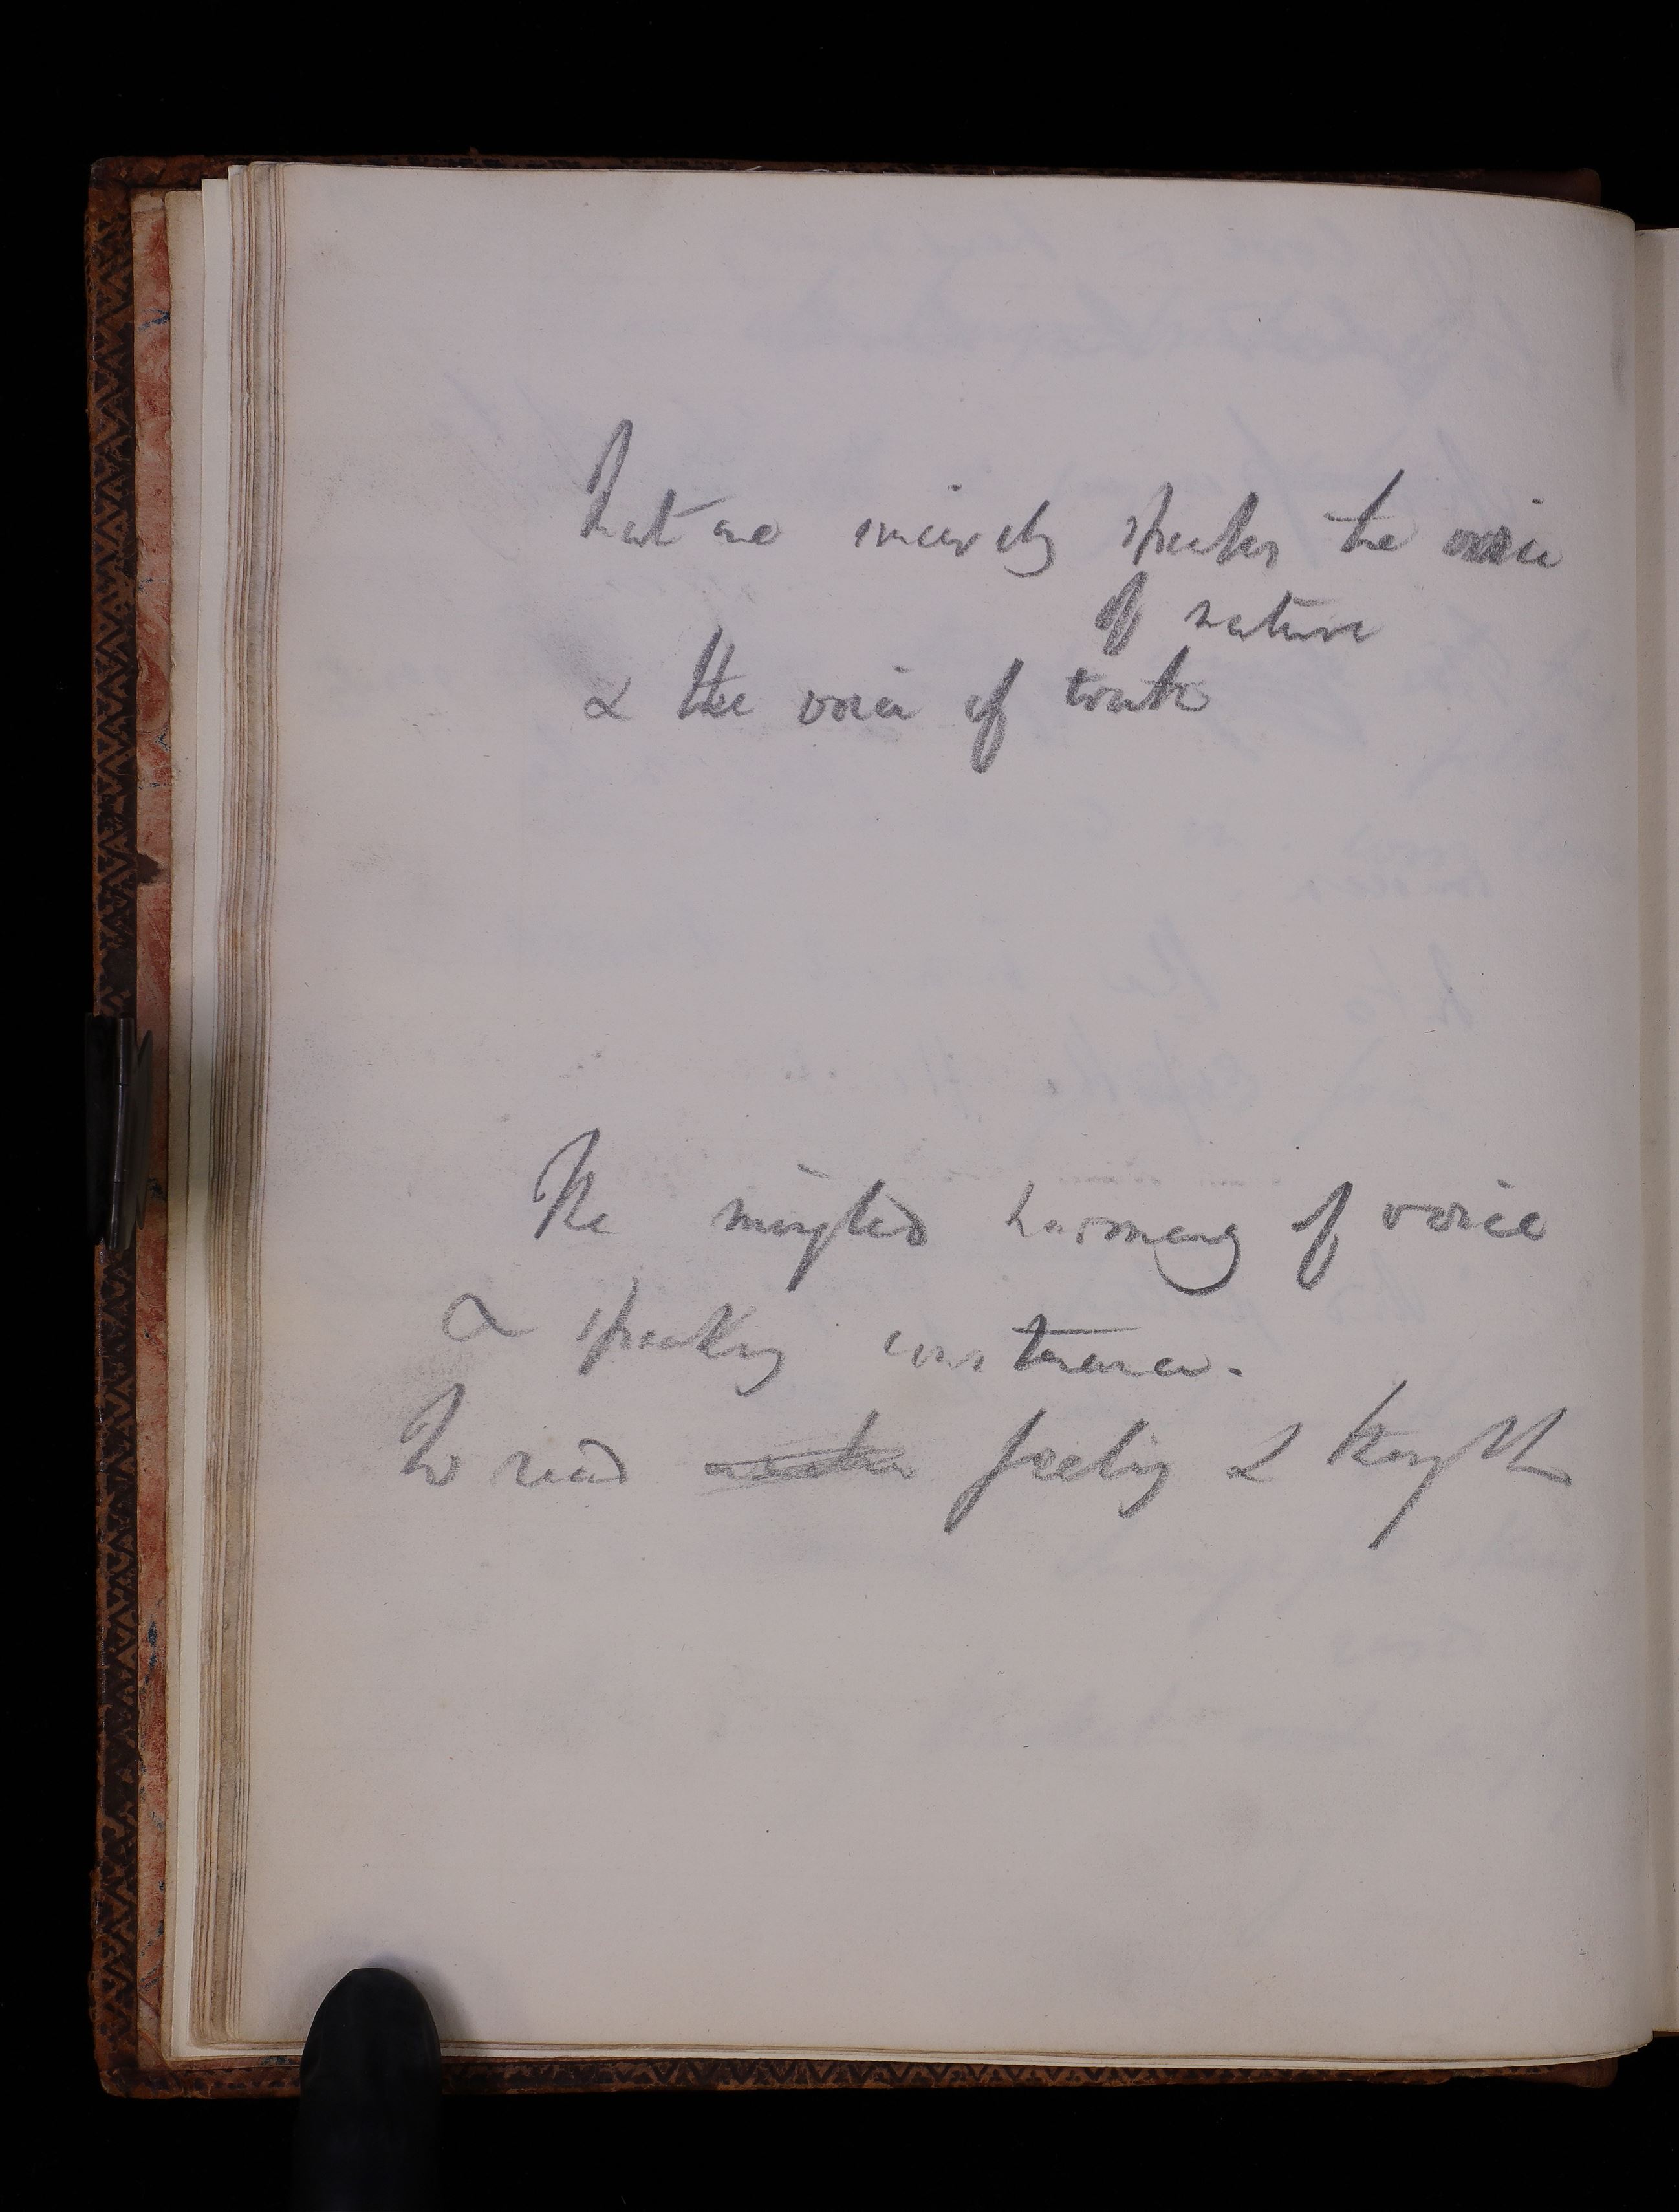 that one sincerely speaks the voice
of nature
& the voice of truth
The mingled harmony of voice
& speaking countenance.
To read feeling & thought